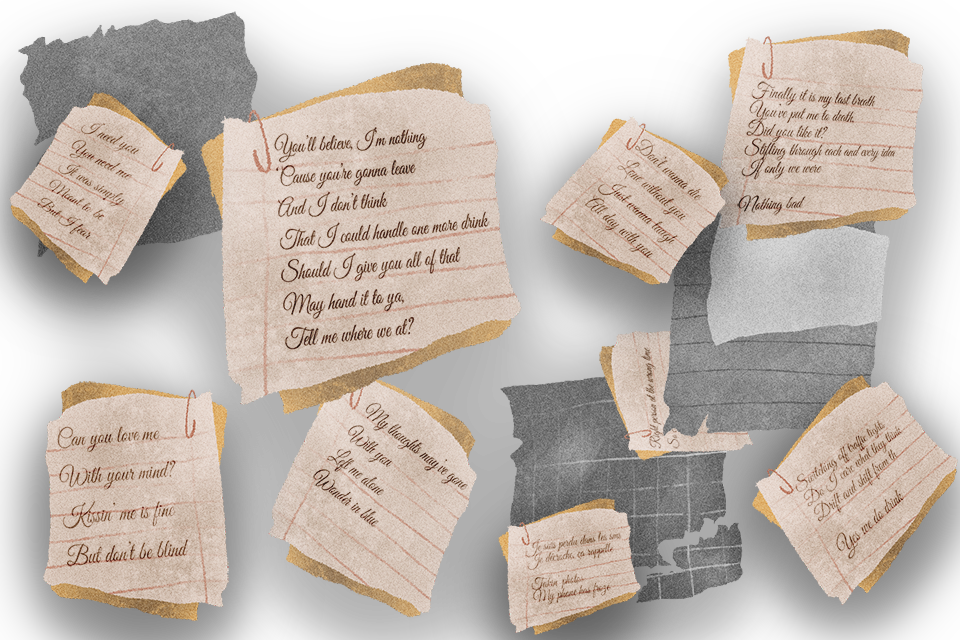 I need you
You need me
It was simply
Meant to be
But I fear
You'll believe, I'm nothing
'Cause you're gonna leave
And I don't think
That I could handle one more drink
Should I give you all of that
May hand it to ya,
Tell me where we at?
Don't wanna die
Love without you
Just wanna laugh
All day with you
Finally it is my last breath
You've put me to death
Did you like it?
Stifling through each and every idea
If only we were
Nothing bad
Right person at the wrong time
Can you love me
With your mind?
Kissin' me is fine
But don't be blind
My thoughts may've gone
With you
Left me alone
Wonder in blue
Je suis perdu dans les sons
Je décroche, ça rappelle
Takin photos
My phone has froze
Switching off traffic light,
Do I care what they think
Drift and shift from th
Yes we do drink